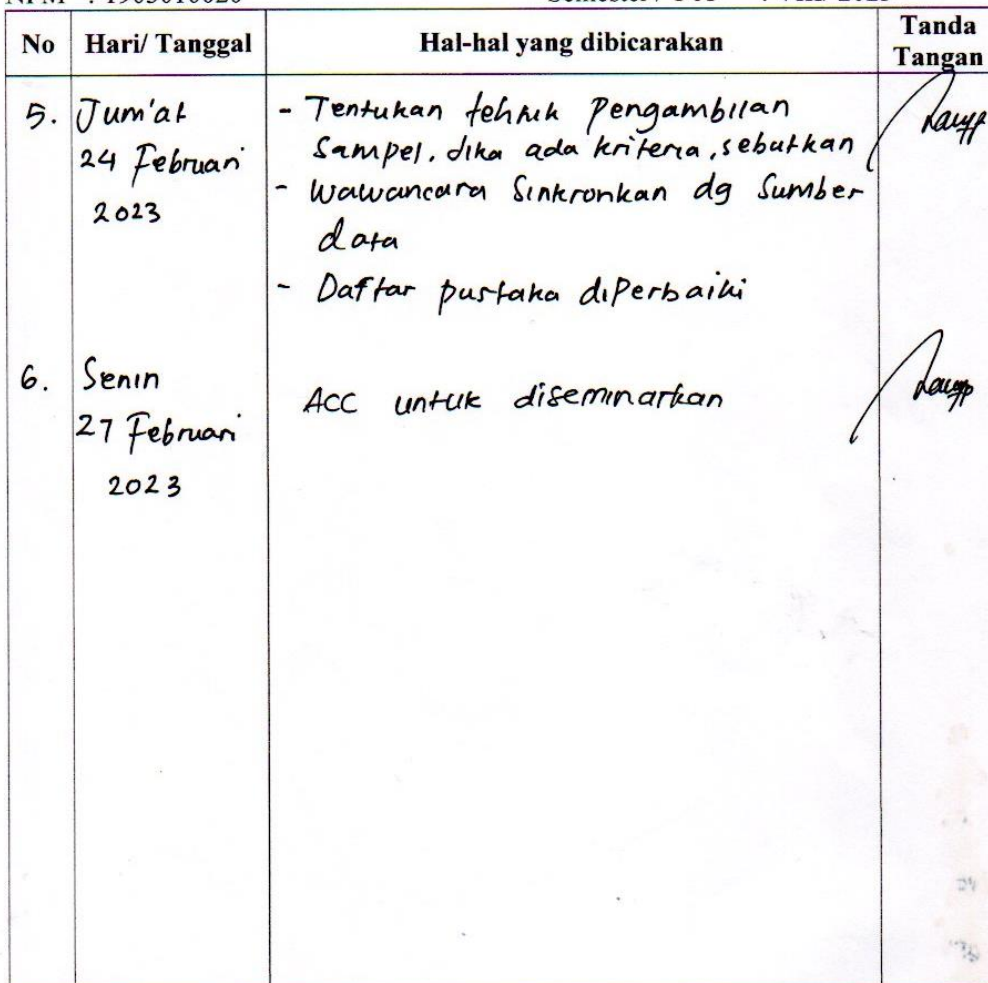 No Hari/ Tanggal Hal-hal yang dibicarakan Tanda Tangan
5. Jum'at
24 Februari
2023
- Tentukan tehnik Pengambilan
Sampel. Jika ada kriteria, sebutkan
- Wawancara Sinkronkan dg Sumber
data
- Daftar pustaka diperbaiki
6. Senin
27 Februari
2023
ACC untuk diseminarkan